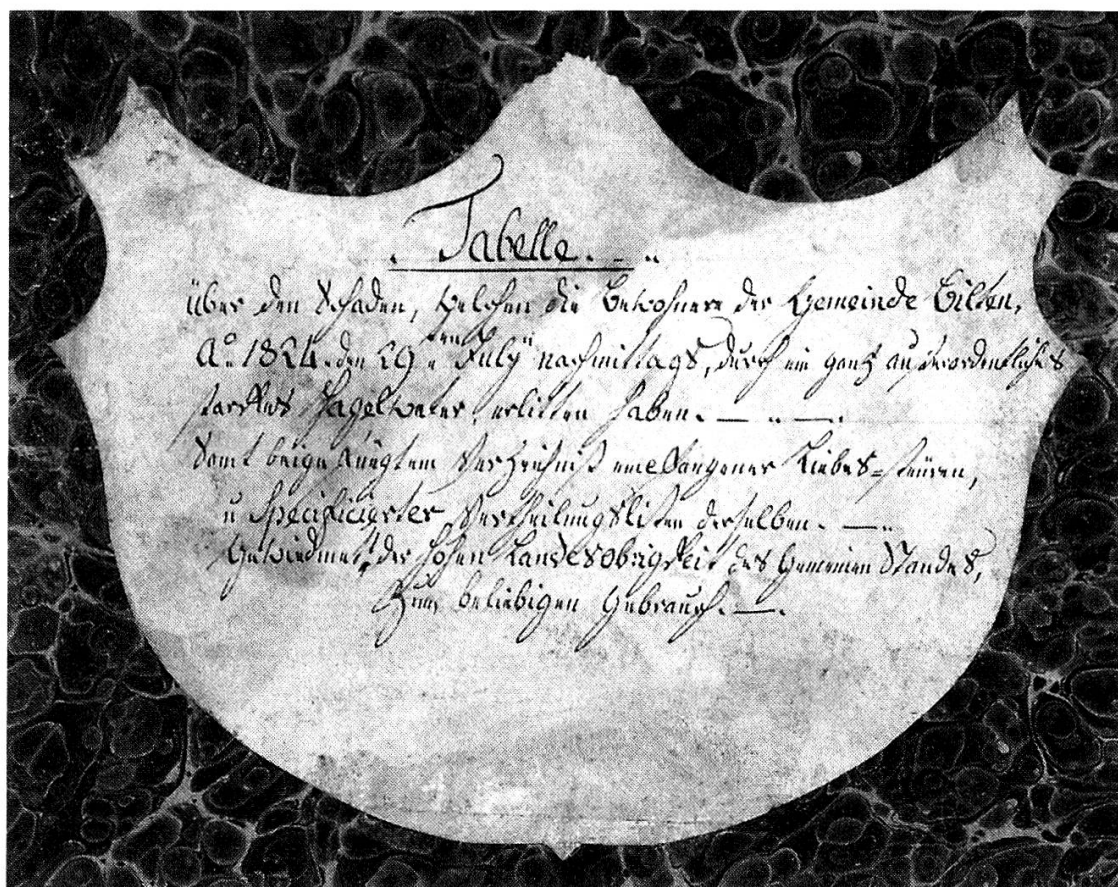 Tabelle. — ..
über den Schaden, welchen die Bewohnere der Gemeinde Bilten,
A.° 1824. den 29.ten July nachmittags, durch ein gantz außerordentliches
starkes Hagelweter, erlitten haben. — .. — .
Samt beigefüegtem Verzeichniß empfangener Liebes=steüren,
u Specificierter Vertheilungslisten derselben. — ..
Gewiedmet, der hohen Landesobrigkeit des Gemeinen Standes,
Zum beliebigen Gebrauch. — .